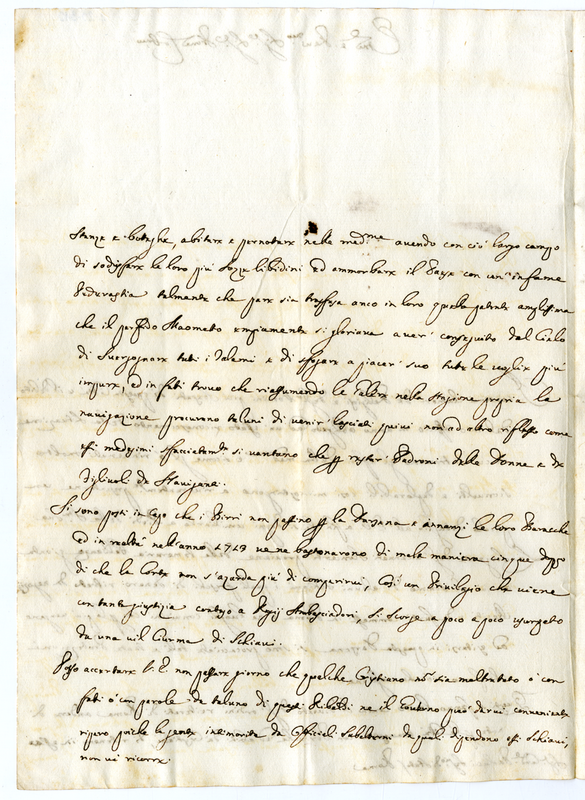 stanze e botteghe, abitare e pernottare nelle med.me avendo con ciò largo campo
di sodisfare le loro più sozze libidini ed ammorbare il Paese con un'infame
talmente che pare sia trasfusa anco in loro quella patente amplissima
che il perfido Maometto empiamente si gloriava aver conseguito dal Cielo
di svergognare tuti i Talami e di sfogare a piacer suo tute le voglie più
impure, ed in fati trovo che riassumendo le Galere nella stagione propria la
navigazione procurano taluni di venir lasciati quivi non ad altro riflesso come
essi medesimi sfacciatam.te si vantano che p restar Padroni delle Donne e de
Figliuoli de Naviganti.
Si sono posti in capo che i Birri non passino p la Darsena e dinanzi le loro Baracche
ed in realtà nell'anno 1713 ve ne bastonarono di mala maniera cinque doppo
di che la Corte non s'azarda più di comparirvi, Così un Privilegio che viene
con tanta giustizia conteso a Regij Ambasciadori, si scorge a poco a poco usurpato
da una vil Ciurma di Schiavi.
Posso accertare V. E. non passare giorno che qualche Cristiano nō sia maltratato ò con
fati ò con parole da taluno di questi Ribaldi ne il Governo può darvi conveniente
riparo poiche la gente intimorita da Officiali Subalterni da quali dipendono essi Schiavi,
non vi ricorre.